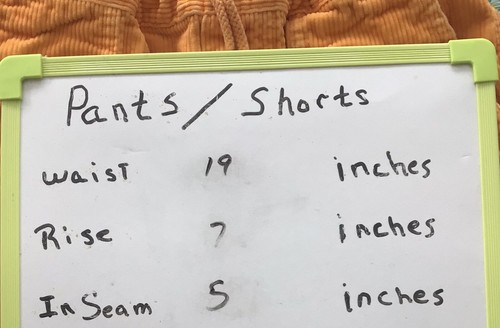 Pants / Shorts
Waist 19 inches
Rise 7 inches
InSeam 5 inches